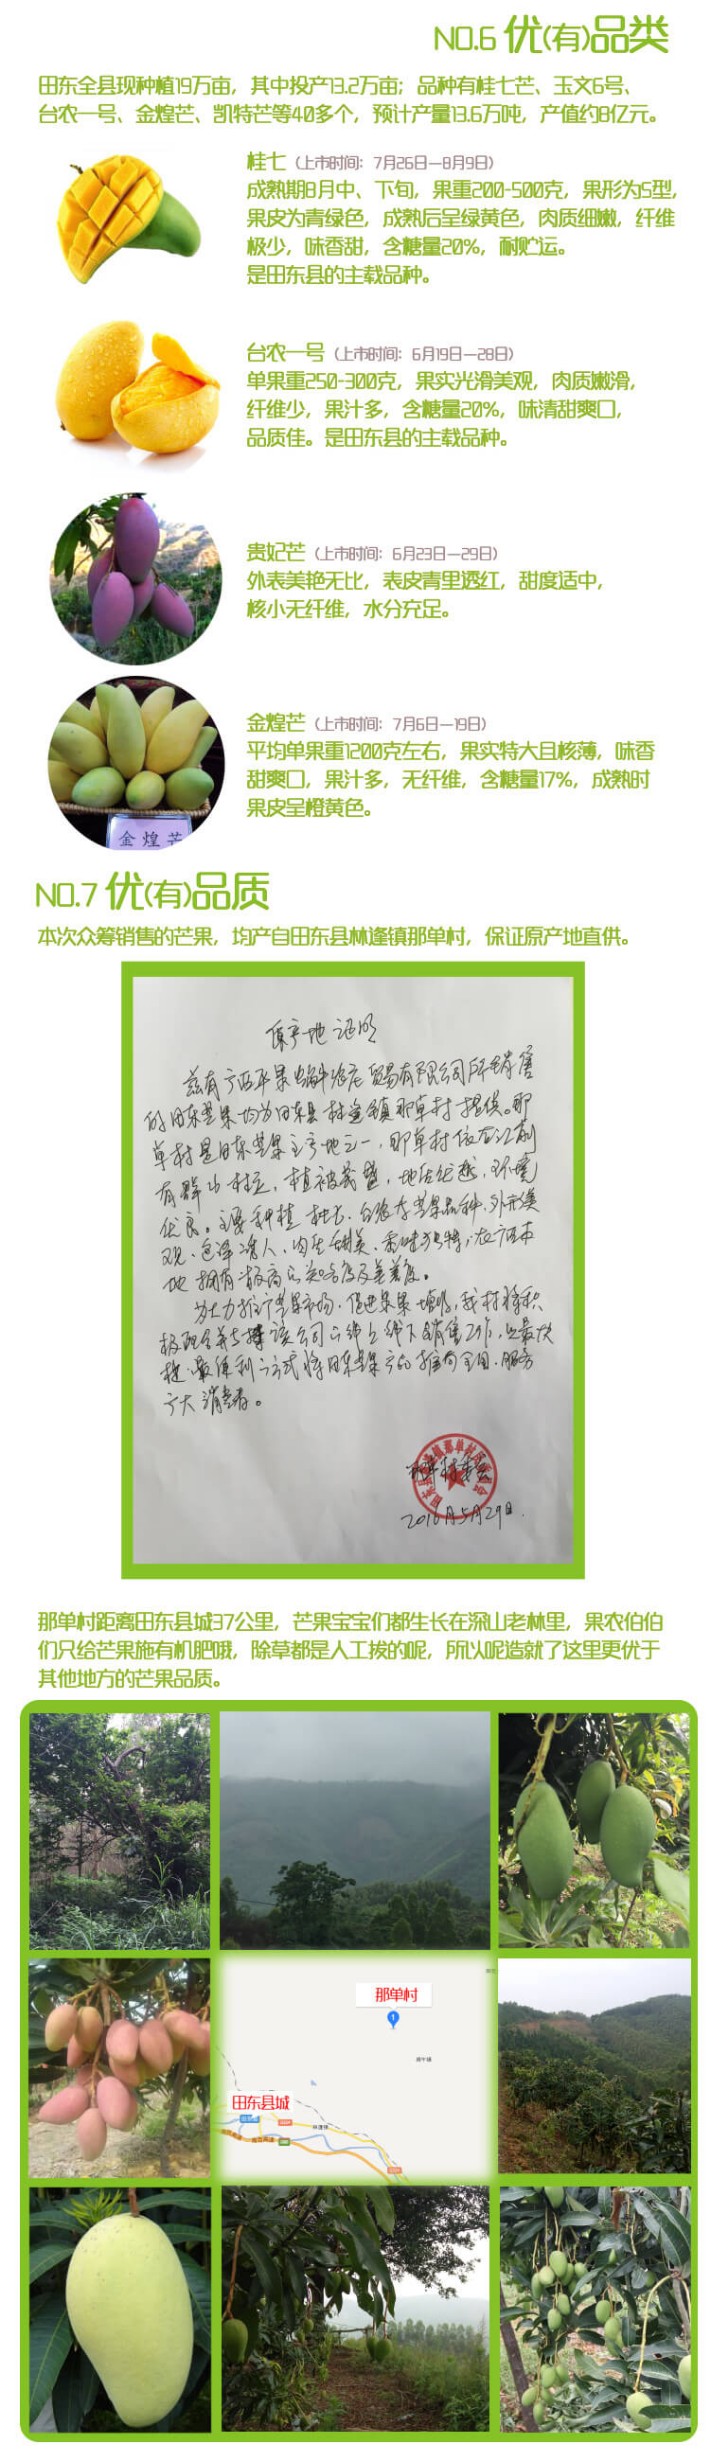 NO.6 优(有)品类
田东全县现种植19万亩，其中投产13.2万亩；品种有桂七芒、玉文6号、
台农一号、金煌芒、凯特芒等40多个，预计产量13.6万吨，产值约8亿元。
桂七（上市时间：7月26日—8月9日）
成熟期8月中、下旬，果重200-500克，果形为S型，
果皮为青绿色，成熟后呈绿黄色，肉质细嫩，纤维
极少，味香甜，含糖量20%，耐贮运。
是田东县的主载品种。
台农一号（上市时间：6月19日—28日）
单果重250-300克，果实光滑美观，肉质嫩滑，
纤维少，果汁多，含糖量20%，味清甜爽口，
品质佳。是田东县的主载品种。
贵妃芒（上市时间：6月23日—29日）
外表美艳无比，表皮青里透红，甜度适中，
核小无纤维，水分充足。
金煌芒（上市时间：7月6日—19日）
平均单果重1200克左右，果实特大且核薄，味香
甜爽口，果汁多，无纤维，含糖量17%，成熟时
果皮呈橙黄色。
金煌芒
NO.7 优(有)品质
本次众筹销售的芒果，均产自田东县林逢镇那单村，保证原产地直供。
原产地证明
兹有广西平果 贸易有限公司所销售
的田东芒果均为田东县林逢镇那单村提供。那
单村是田东芒果主产地之一，那单村依右江南
有群山 ，植被茂盛，地质优越，环境
优良。主要种植桂七、台农等芒果品种，外形美
观、色泽 人、肉质甜美、香味独特，在广西本
地拥有极高的知名度及美誉度。
为大力推广芒果市场，促进果农增收，我村将积
极配合并支持该公司的线上线下销售工作，以最快
捷、最便利的方式将田东芒果产品推向全国，服务
广大消费者。
那单村委会
2016年5月29日.
那单村距离田东县城37公里，芒果宝宝们都生长在深山老林里，果农伯伯
们只给芒果施有机肥哦，除草都是人工拔的呢，所以呢造就了这里更优于
其他地方的芒果品质。
那单村
1
田东县城